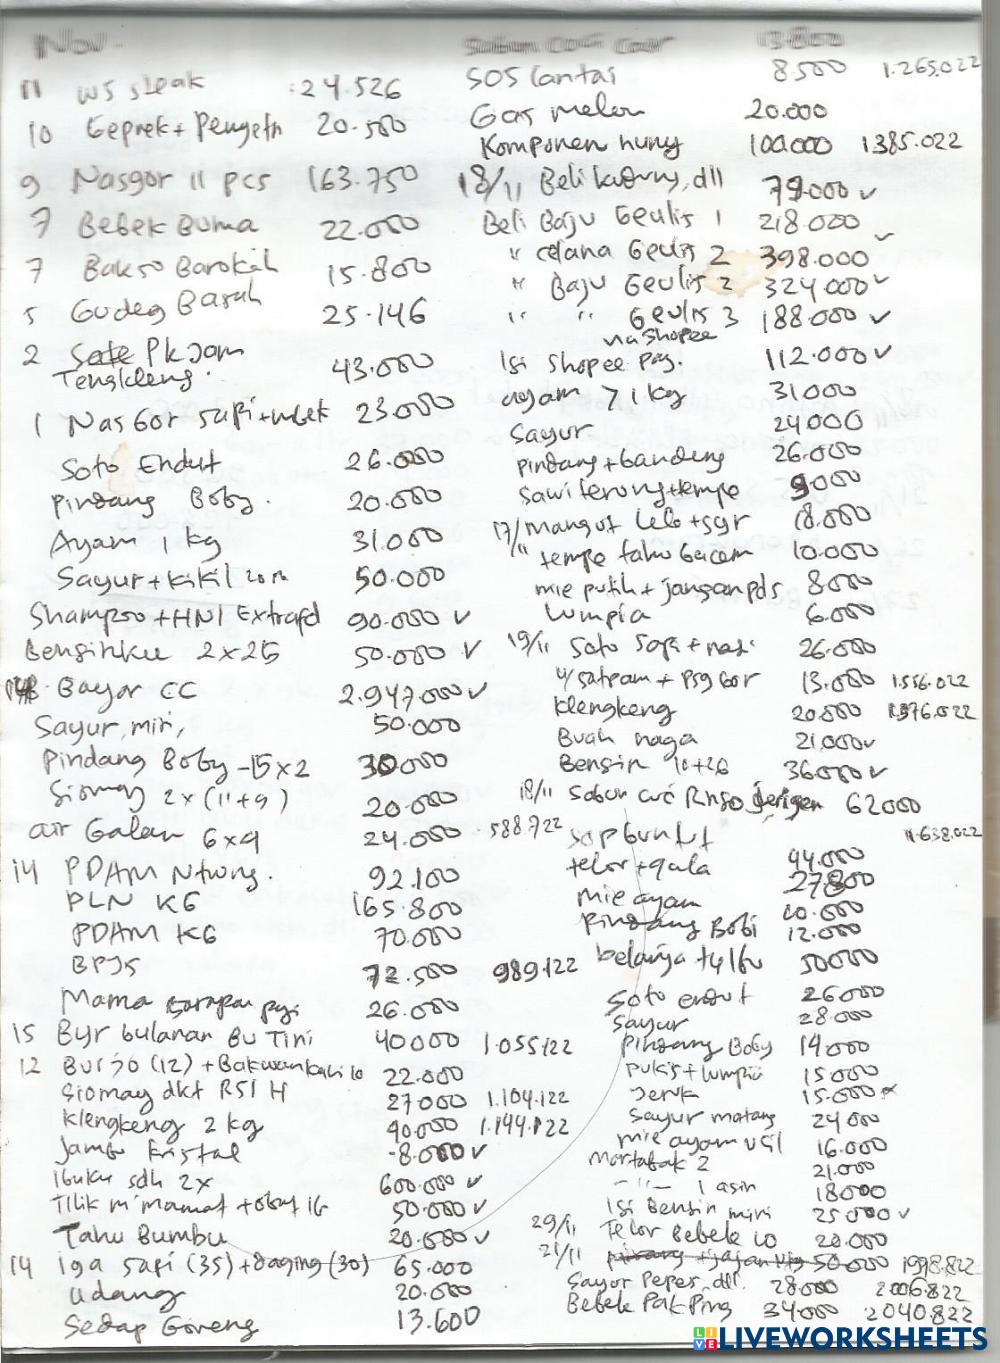 Nov.
11 WS Steak :24.526
10 Geprek + Penyetn 20.500
9 Nasgor 11 pcs 163.750
7 Bebek Buma 22.000
7 Bakso Barokah 15.800
5 Gudeg Basah 25.146
2 Sate Pk Jam
Tengkleng. 43.000
1 NasGor sapi + 23.000
Soto Endut 26.000
Pindang Boby. 20.000
Ayam 1 kg 31.000
Sayur + kikil 50.000
Shampoo + HNI Extrafd 90.000 v
Bensinku 2x25 50.000 v
Bayar CC 2.947.000 v
Sayur, miri, 50.000
Pindang Boby - 15x2 30000
Siomay 2x (11+9) 20.000
air Galan 6x4 24.000 588.722
14 PDAM Ntwng. 92.100
PLN KG 165.800
PDAM KG 70.000
BPJS 72.500 989.122
Mama pgi 26.000
15 Byr bulanan Bu Tini 40000 1.055.122
12 Burjo (12) + Bakwan 10 22.000
Siomay dkt RSI H 27000 1.104.122
Klengkeng 2 kg 40.000 1.144.122
Jambu Kristal -8.000 v
Ibuku sdh 2x 600.000 v
Tilik m' mamat + obat 50.000 v
Tahu Bumbu 20.500 v
14 iga sapi (35) + daging (30) 65.000
udang 20.000
Sedap Goreng 13.600
Sabun Cuci Cair 13.800
SOS Lantai 8.500 1.265.022
Gas melon 20.000
Komponen hung 100.000 1385.022
18/11 Beli , dll 79.000 v
Beli Baju Geulis 1 218.000
" celana Geulis 2 398.000
" Baju Geulis 2 324.000 v
" " Geulis 3 188.000 v
na shopee
Isi Shopee pay. 112.000 v
ayam > 1 kg 31.000
Sayur 24000
pindang + bandeng 26.000
sawi terong + tempe 9000
17/11 mangut lele + sgr 18.000
tempe tahu bacem 10.000
mie putih + jangan pds 8000
Lumpia 6.000
19/11 Soto Sapi + nasi 26.000
u/ satpam + Psg Gor 13.000 1.556.022
Klengkeng 20.000
Buah naga 21.000 v
Bensin 10+26 36.000 v
18/11 Sabun cuc Rinso Jerigen 62000
sop buntut 44.000 11.638.022
telor + gula 27800
mie ayam 10.000
Pindang Bobi 12.000
belanja 50000
Soto endut 26000
Sayur 28.000
Pindang Boby 14000
Pukis + lumpia 15000
Jeruk 15.000
Sayur matang 24000
mie ayam 16.000
Martabak 2 21.000
- " - 1 asin 18000
Isi Bensin miri 25000 v
29/11 Telor Bebek 10 20.000
21/11 50000 1998.822
Sayur Pepes, dll. 28.000 2006.822
Bebek Pak Ping 34000 2040.822
LIVEWORKSHEETS